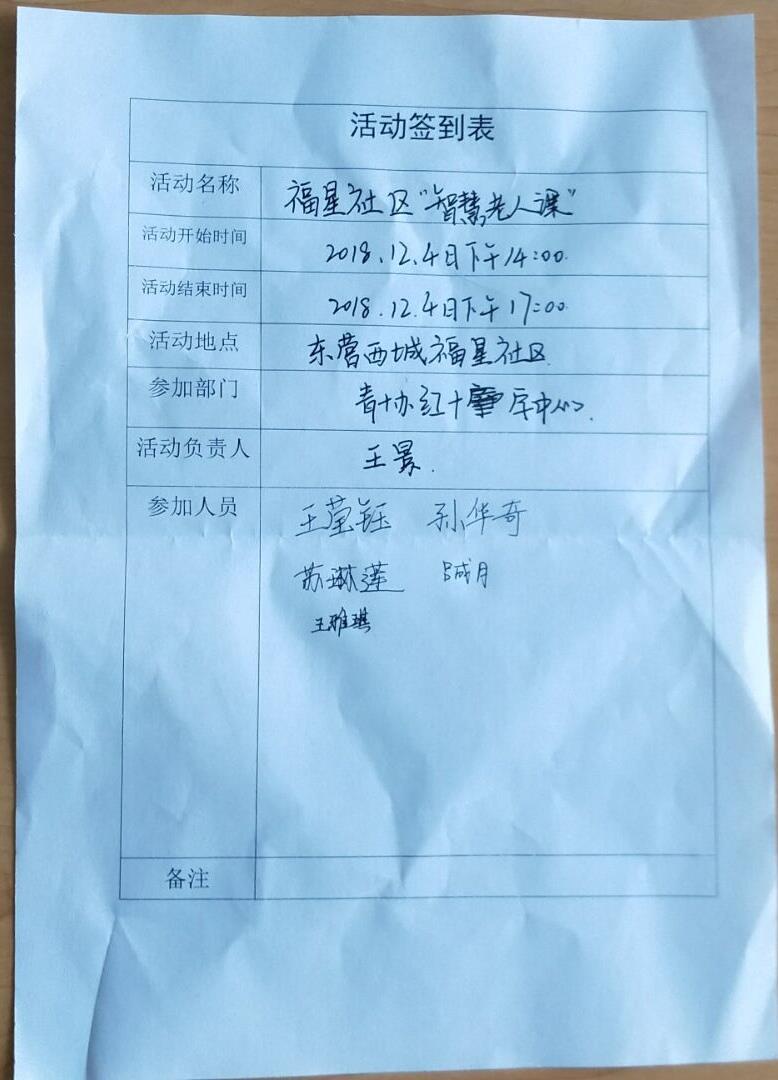 活动签到表
活动名称 福星社区“智慧老人课”
活动开始时间 2018.12.4日下午14:00.
活动结束时间 2018.12.4日下午17:00.
活动地点 东营西城福星社区
参加部门 青协红十字中心.
活动负责人 王景.
参加人员 王莹钰 孙华奇
苏琳莲
王雅琪
备注